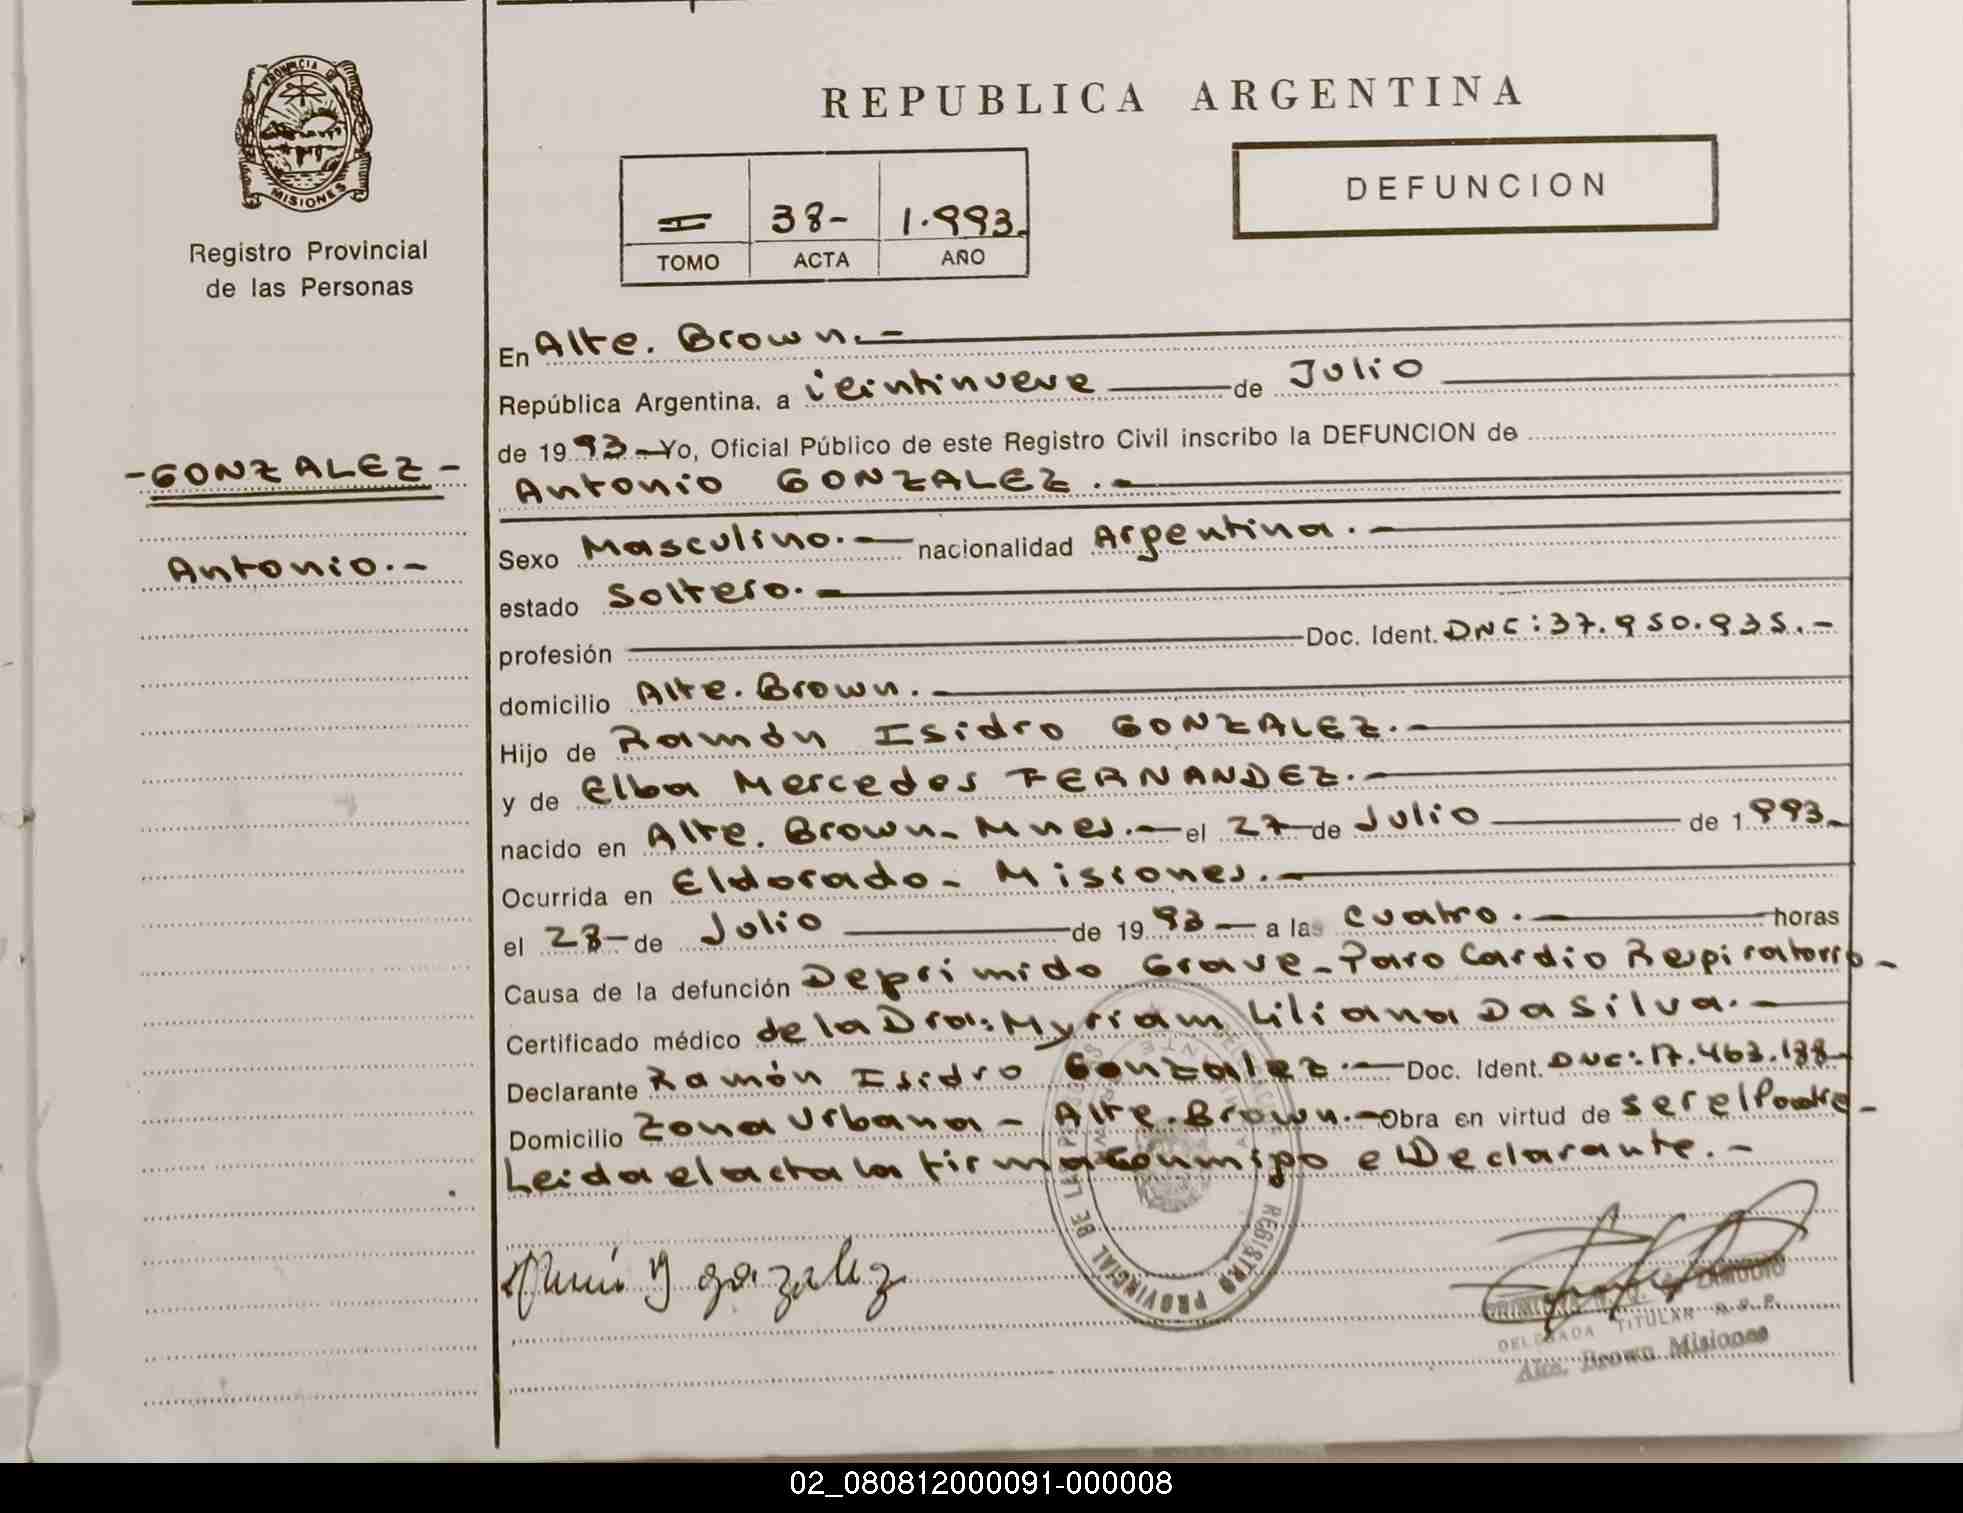 PROVINCIA DE
MISIONES
Registro Provincial
de las Personas
-GONZALEZ-
Antonio.-
REPUBLICA ARGENTINA
I 38- 1.993.
TOMO ACTA AÑO
DEFUNCION
En Alte. Brown.-
República Argentina, a ieintinueve de Julio
de 1993-Yo, Oficial Público de este Registro Civil inscribo la DEFUNCION de
Antonio GONZALEZ.-
Sexo Masculino.- nacionalidad Argentina.-
estado Soltero.-
profesión Doc. Ident. DNC: 37.950.935.-
domicilio Alte. Brown.
Hijo de Ramón Isidro GONZALEZ.-
y de Elba Mercedes FERNANDEZ.-
nacido en Alte. Brown- Mnes.- el 27-de Julio de 1993.
Ocurrida en Eldorado- Misiones.-
el 28-de Julio de 1993- a las cuatro. horas
Causa de la defunción Deprimido Grave-Paro Cardio Respiratorio-
Certificado médico de la Dra: Myriam Liliana Da Silva.-
Declarante Ramón Isidro Gonzalez.- Doc. Ident. DNC: 17.463.188-
Domicilio Zona Urbana- Alte. Brown.- Obra en virtud de ser el Padre-
Leida el acta la firma conmigo el Declarante.-
gonzalez
REGISTRO PROVINCIAL DE LAS PERSONAS
ZAMUDIO
DELEGADA TITULAR R.P.P.
Alte. Brown Misiones
02_080812000091-000008